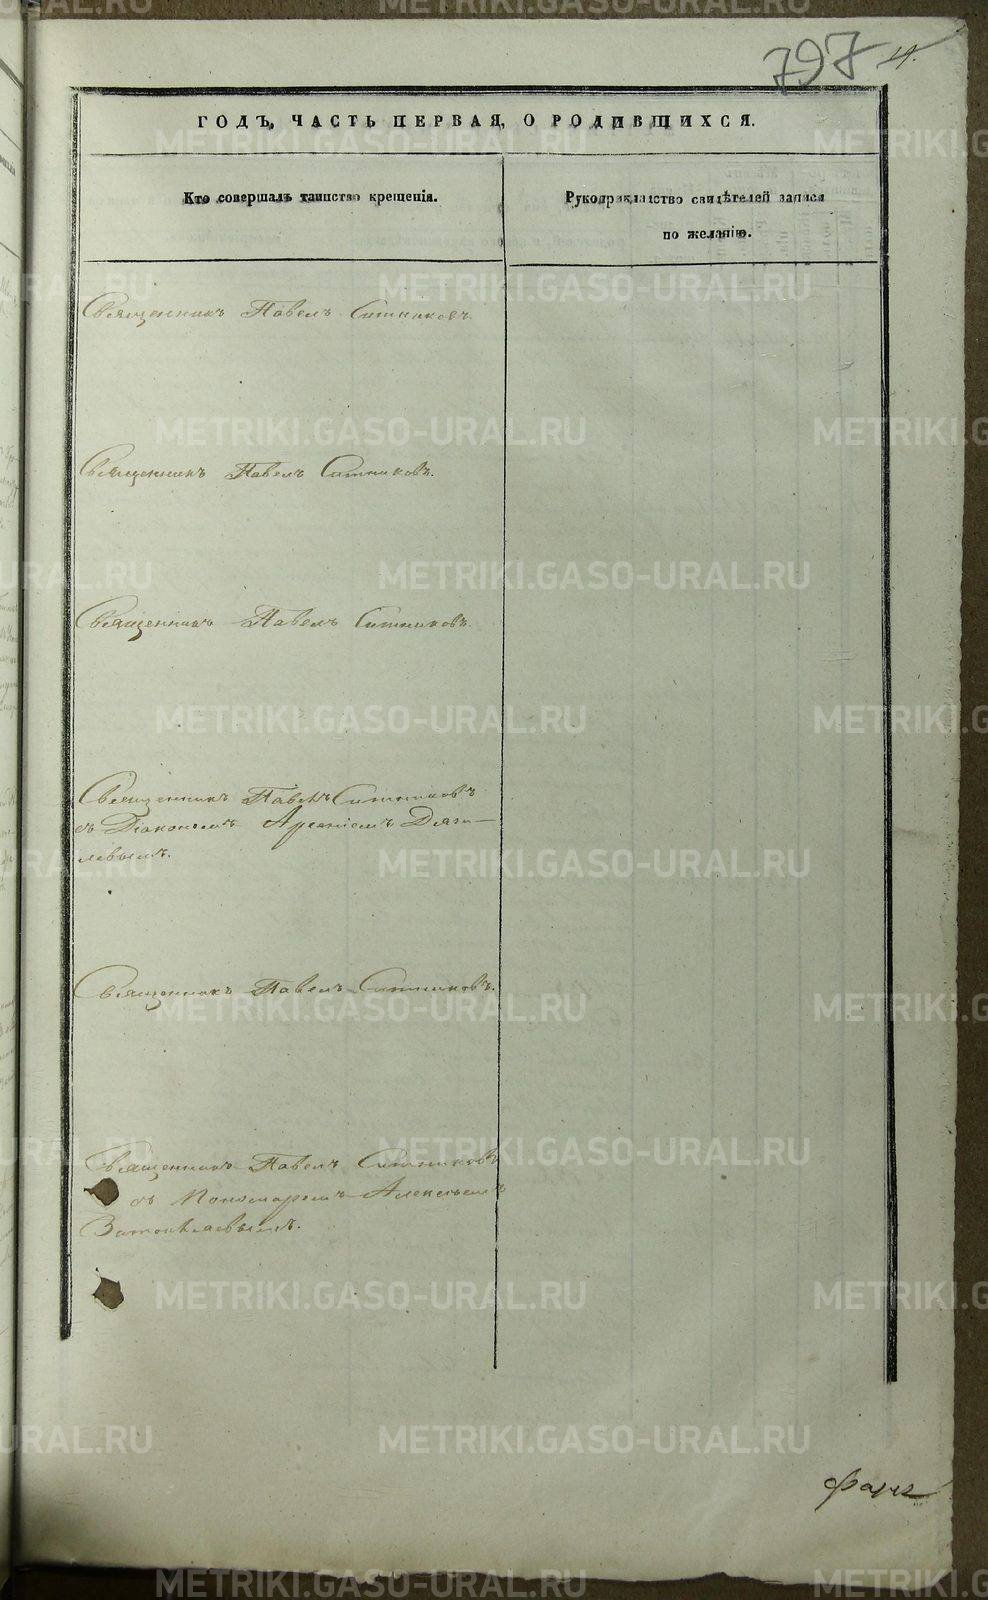 797 14.
ГОДЪ, ЧАСТЬ ПЕРВАЯ, О РОДИВШИХСЯ.
Кто совершалъ таинство крещенія.
Рукоприкладство свидѣтелей записи
по желанію.
Священникъ Павелъ Ситниковъ.
Священникъ Павелъ Ситниковъ.
Священникъ Павелъ Ситниковъ.
Священникъ Павелъ Ситниковъ
съ Діакономъ Арсеніемъ
Священникъ Павелъ Ситниковъ.
Священникъ Павелъ Ситниковъ
съ Пономаремъ Алексѣемъ
METRIKI.GASO-URAL.RU